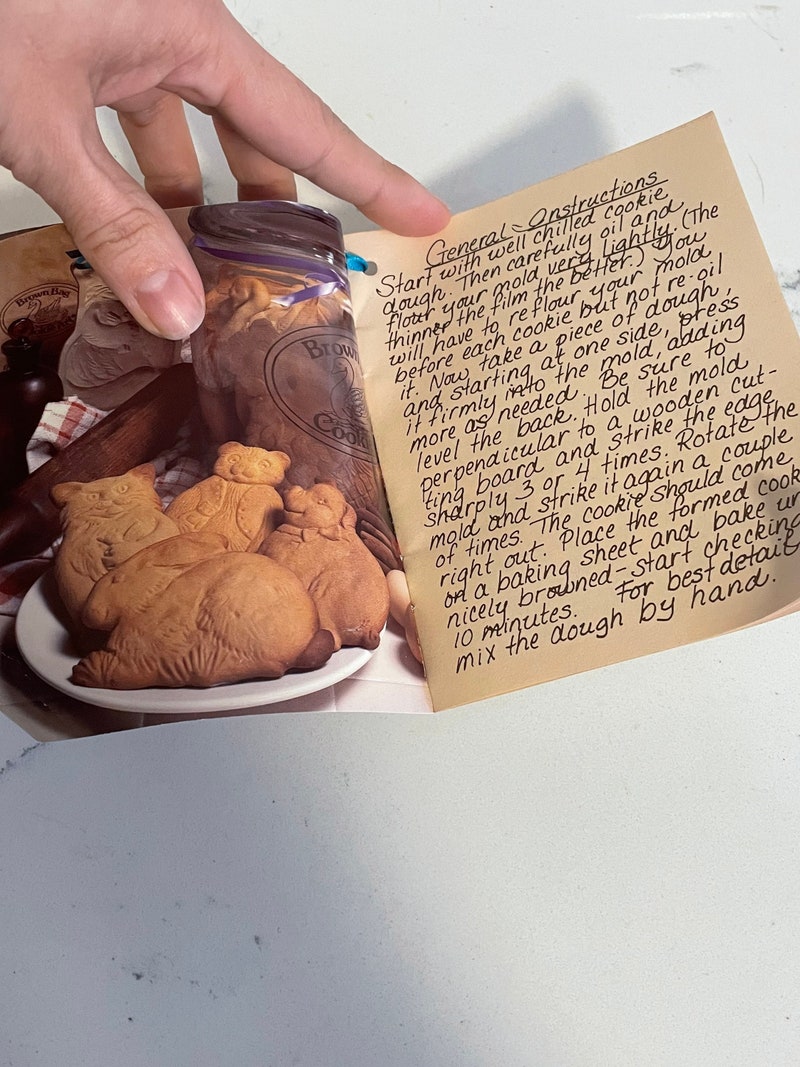 Brown Bag
Brown
Cookie
General Instructions
Start with well chilled cookie
dough. Then carefully oil and
flour your mold very lightly. (The
thinner the film the better.) You
will have to reflour your mold
before each cookie but not re-oil
it. Now, take a piece of dough,
and starting at one side, press
it firmly into the mold, adding
more as needed. Be sure to
level the back. Hold the mold
perpendicular to a wooden cut-
ting board and strike the edge
sharply 3 or 4 times. Rotate the
mold and strike it again a couple
of times. The cookie should come
right out. Place the formed cook
on a baking sheet and bake un
nicely browned-start checking
10 minutes. For best detail
mix the dough by hand.